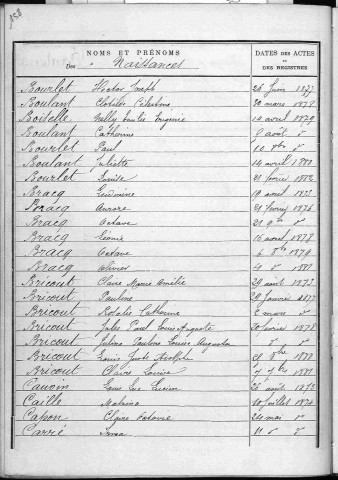 158
NOMS ET PRÉNOMS
Des Naissances
DATES DES ACTES
ET
DES REGISTRES
Bourlet Hector Joseph 26 Juin 1877
Boulant Clotilde Célestine 20 mars 1878
Boidelle Nelly Emilie Eugénie 14 avril 1879
Boulant Catherine 9 août d°
Bourlet Paul 10 8bre d°
Boulant Juliette 14 avril 1880
Bourlet Emile 21 février 1882
Bracq 19 avril 1873
Bracq Aurore 21 février 1876
Bracq Octave 21 9bre d°
Bracq Léonie 16 avril 1878
Bracq Octave 6 8bre 1879
Bracq Olivier 4 d° 1881
Bricout Claire Marie Amélie 29 août 1873
Bricout Pauline 29 Janvier 1877
Bricout Natalie Catherine 6 mars d°
Bricout Jules Paul Louis Auguste 20 février 1878
Bricout Juline Pauline Louise Augustine d° d°
Bricout Louis Juste Adolphe 28 8bre 1880
Bricout Claire Louise 7 7bre 1881
Cauvin Luc Lucien 26 août 1873
Caille 10 Juillet 1874
Capon Claire Octavie 24 mai d°
Carré Irma 11 d° d°